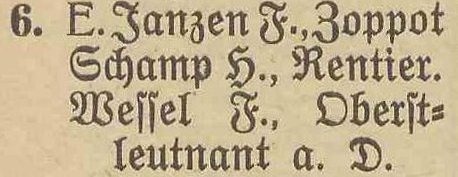 6. E. Janzen F., Zoppot
Schamp H., Rentier.
Wessel F., Oberst-
leutnant a. D.